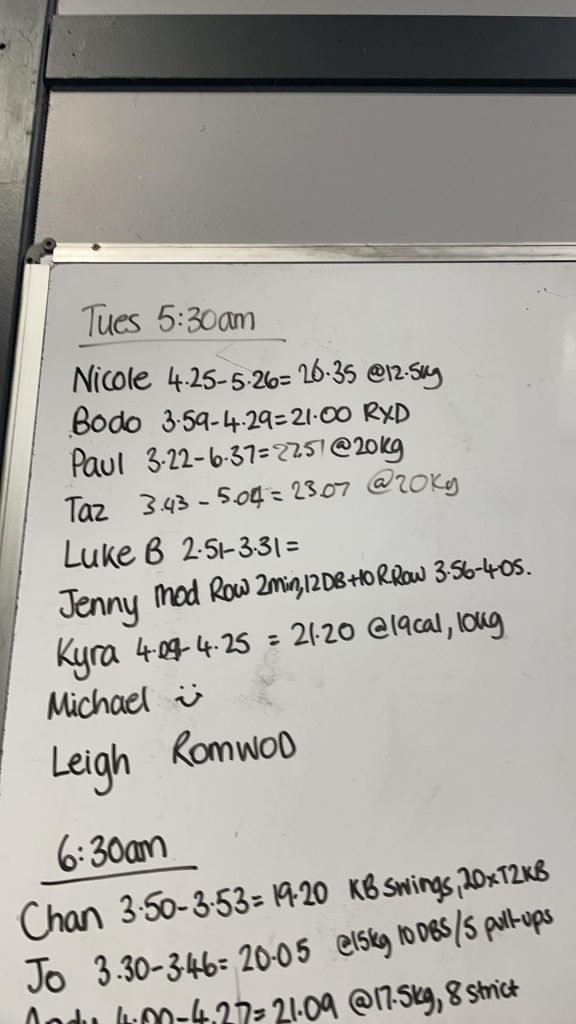 Tues 5:30am
Nicole 4.25-5.26= 26.35 @12.5kg
Bodo 3.59-4.29=21.00 RXD
Paul 3.22-6.37=22.51 @20kg
Taz 3.43-5.04=23.07 @20kg
Luke B 2.51-3.31=
Jenny mod Row 2min, 12DB+10R.Row 3.56-4.05.
Kyra 4.09-4.25 = 21.20 @19cal, 10kg
Michael
Leigh ROMWOD
6:30am
Chan 3.50-3.53=19.20 KB swings, 20xT2KB
Jo 3.30-3.46=20.05 @15kg 10DBS/5 pull-ups
Andy 4.00-4.27=21.09 @17.5kg, 8 strict